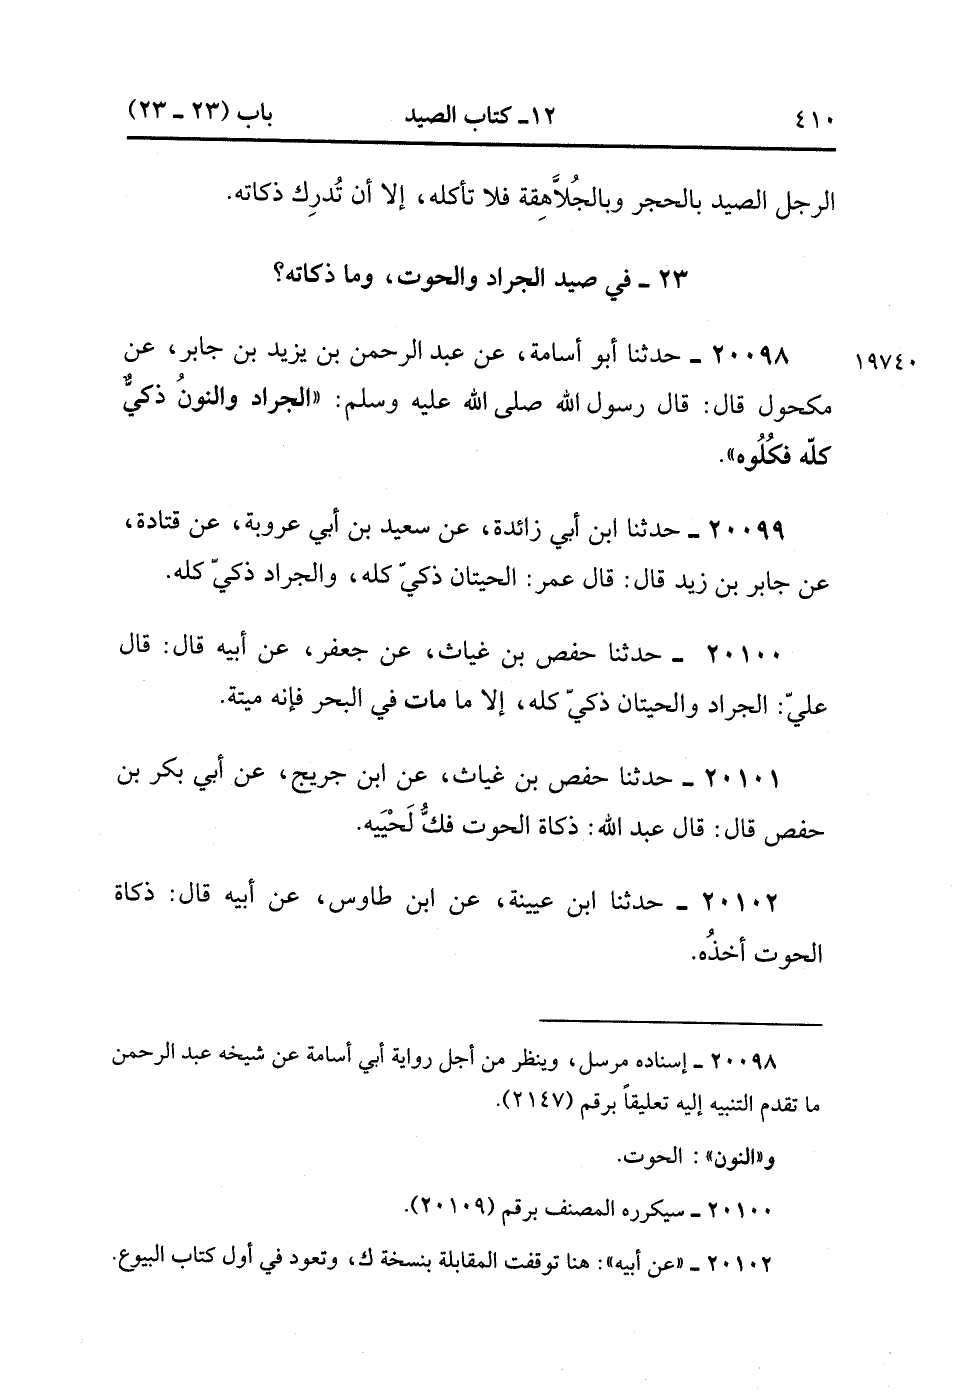 ٤١٠ ١٢ـ كتاب الصيد باب (٢٣ ـ ٢٣)
الرجل الصيد بالحجر وبالجُلاَّهِقة فلا تأكله، إلا أن تُدرِك ذكاته.
٢٣ ـ في صيد الجراد والحوت، وما ذكاته؟
١٩٧٤٠ ٢٠٠٩٨ ـ حدثنا أبو أسامة، عن عبد الرحمن بن يزيد بن جابر، عن
مكحول قال: قال رسول الله صلى الله عليه وسلم: «الجراد والنونُ ذكيٌّ
كلّه فكُلُوه».
٢٠٠٩٩ ـ حدثنا ابن أبي زائدة، عن سعيد بن أبي عروبة، عن قتادة،
عن جابر بن زيد قال: قال عمر: الحيتان ذكيّ كله، والجراد ذكيّ كله.
٢٠١٠٠ ـ حدثنا حفص بن غياث، عن جعفر، عن أبيه قال: قال
عليّ: الجراد والحيتان ذكيّ كله، إلا ما مات في البحر فإنه ميتة.
٢٠١٠١ ـ حدثنا حفص بن غياث، عن ابن جريج، عن أبي بكر بن
حفص قال: قال عبد الله: ذكاة الحوت فكُّ لَحْيَيه.
٢٠١٠٢ ـ حدثنا ابن عيينة، عن ابن طاوس، عن أبيه قال: ذكاة
الحوت أخذُه.
٢٠٠٩٨ ـ إسناده مرسل، وينظر من أجل رواية أبي أسامة عن شيخه عبد الرحمن
ما تقدم التنبيه إليه تعليقاً برقم (٢١٤٧).
و«النون»: الحوت.
٢٠١٠٠ ـ سيكرره المصنف برقم (٢٠١٠٩).
٢٠١٠٢ ـ «عن أبيه»: هنا توقفت المقابلة بنسخة ك، وتعود في أول كتاب البيوع.